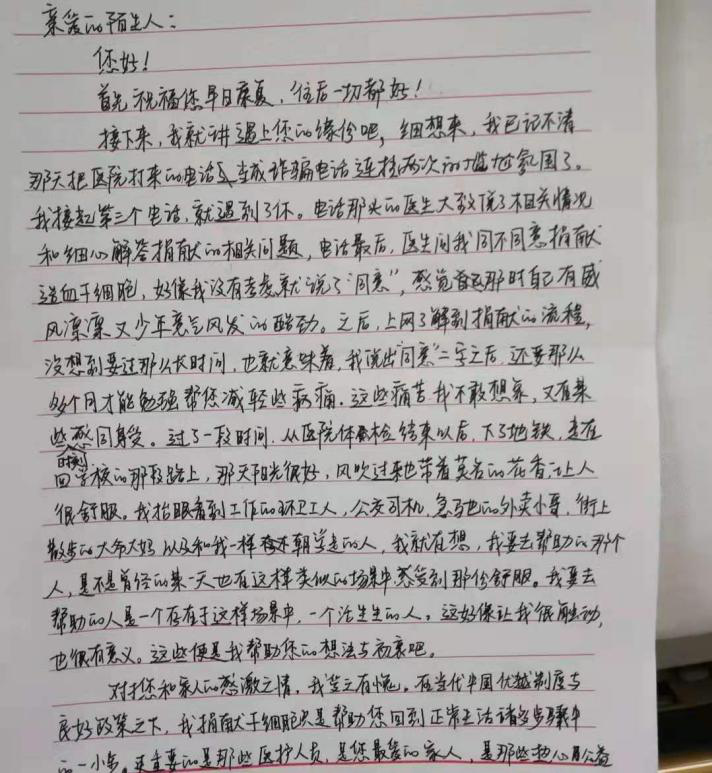 亲爱的陌生人：
您好！
首先祝福您早日康复，往后一切都好！
接下来，我就讲遇上您的缘份吧，细想来，我已记不清
那天把医院打来的电话当成诈骗电话连挂两次的尴尬氛围了。
我接起第三个电话，就遇到了你。电话那头的医生大致说了相关情况
和细心解答捐献的相关问题，电话最后，医生问我同不同意捐献
造血干细胞，好像我没有考虑就说了“同意”，感觉那时自己有威
风凛凛又少年意气风发的酷劲。之后，上网了解到捐献的流程，
没想到要过那么长时间，也就意味着，我说出“同意”二字之后，还要那么
多个月才能勉强帮您减轻些病痛。这些痛苦我不敢想象，又有某
些时刻感同身受。过了一段时间，从医院体检结束以后，下了地铁，走在
回学校的那段路上，那天阳光很好，风吹过来也带着莫名的花香，让人
很舒服。我抬眼看到工作的环卫工人，公交司机，急驰的外卖小哥，街上
散步的大爷大妈以及和我一样朝学走的人，我就在想，我要去帮助的那个
人，是不是曾经的某一天也在这样类似的场景中感受到那份舒服。我要去
帮助的人是一个存在于这样场景中，一个活生生的人。这好像让我很触动，
也很有意义。这些便是我帮助您的想法与初衷吧。
对于您和家人的感激之情，我受之有愧。在当代中国优越制度与
良好政策之下，我捐献干细胞只是帮助您回到正常生活诸多步骤中
的一小步。更重要的是那些医护人员，是您最爱的家人，是那些热心公益